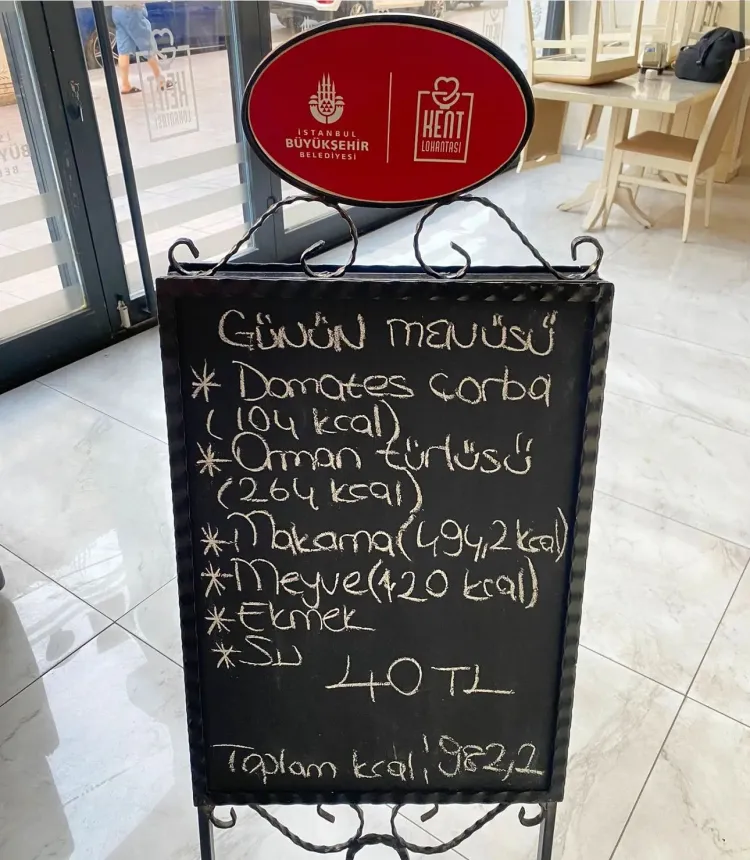 İSTANBUL
BÜYÜKŞEHİR
BELEDİYESİ
KENT
LOKANTASI
GÜNÜN MENÜSÜ
* Domates çorba
(104 kcal)
* Orman türlüsü
(264 kcal)
* Makarna (494,2 kcal)
* Meyve (120 kcal)
* Ekmek
* Su
40 TL
Toplam kcal: 982,2